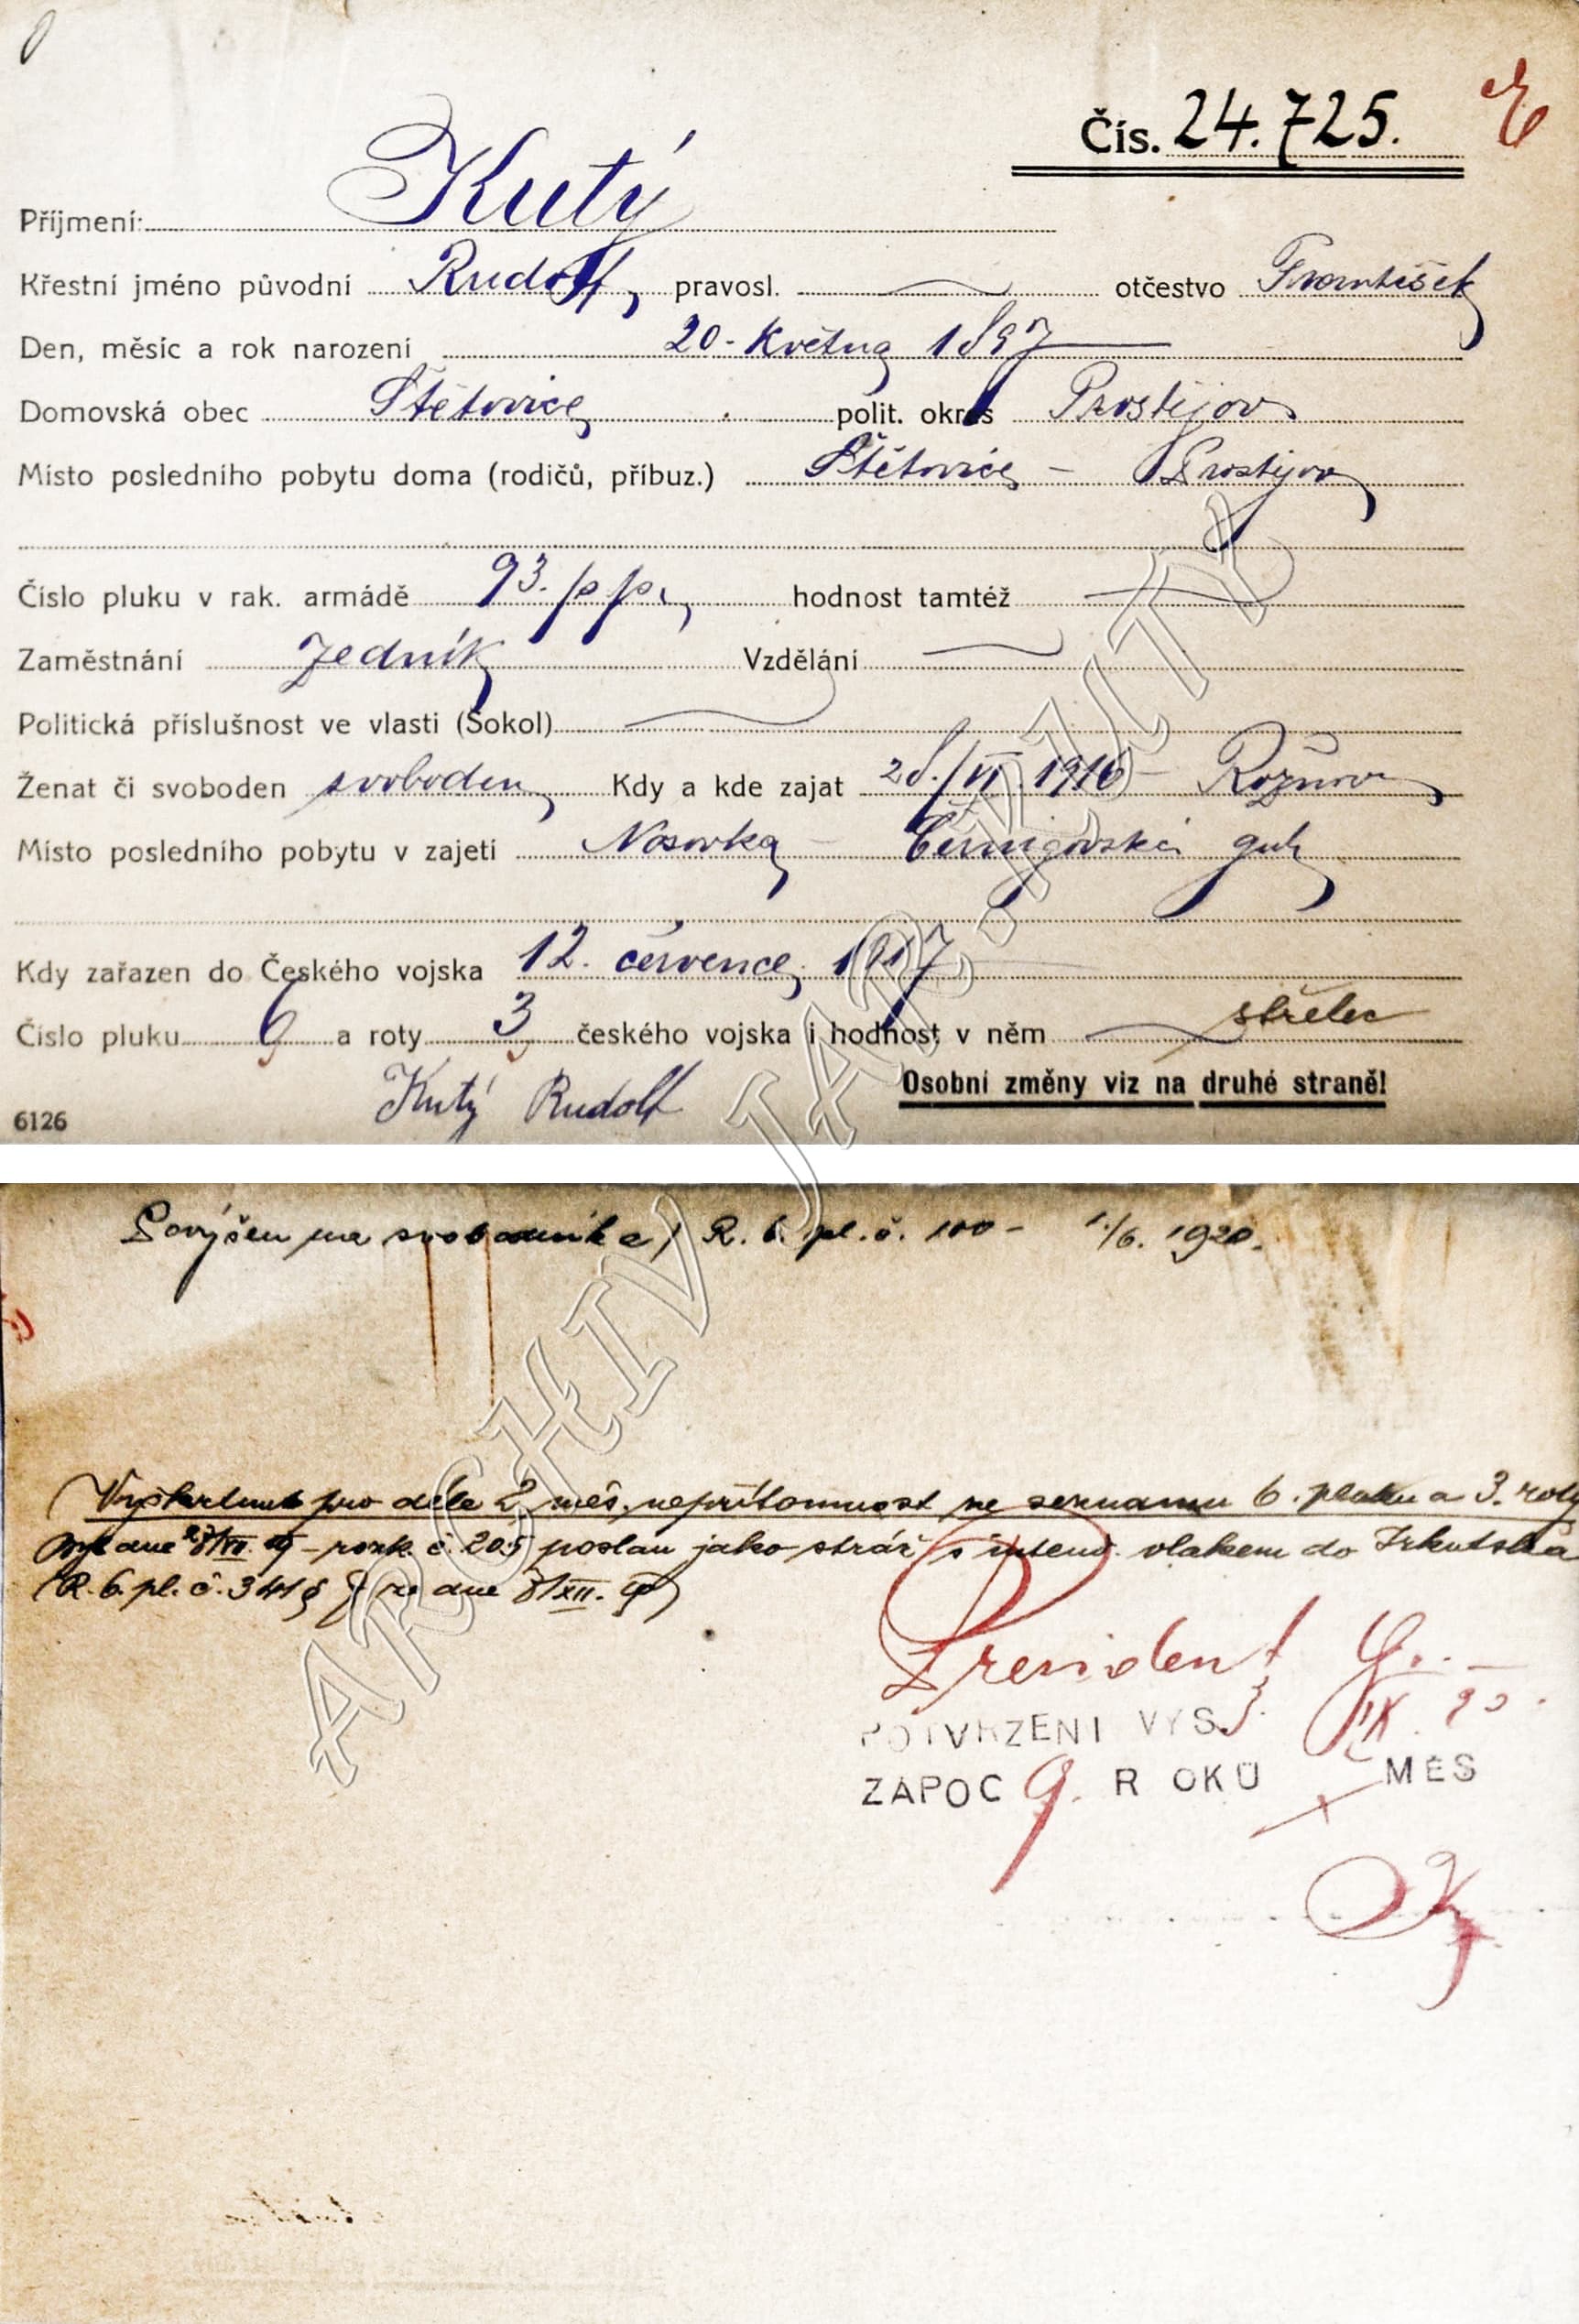 Čís. 24.725.
Příjmení: Kutý
Křestní jméno původní Rudolf, pravosl. otčestvo František
Den, měsíc a rok narození 20. Května 1897
Domovská obec Štětovice polit. okres Prostějov
Místo posledního pobytu doma (rodičů, příbuz.) Štětovice - Prostějov
Číslo pluku v rak. armádě 93. p. p. hodnost tamtéž
Zaměstnání zedník Vzdělání
Politická příslušnost ve vlasti (Sokol)
Ženat či svoboden svoboden Kdy a kde zajat 28./VI. 1916 - Rožnov
Místo posledního pobytu v zajetí Nosovka - Černigovská gub.
Kdy zařazen do Českého vojska 12. července 1917
Číslo pluku 6 a roty 3 českého vojska i hodnost v něm střelec
Kutý Rudolf Osobní změny viz na druhé straně!
6126
Povýšen na svobodníka, R. 6. pl. č. 100 - 1./6. 1920.
Vyškrtnut pro déle 2 měs. nepřítomnost ze seznamu 6. pluku a 3. roty
dne /VII. 19 - rozk. č. 205 poslan jako stráž s intend. vlakem do Irkutska
(R. 6. pl. č. 341 § ze dne 8/XII. 19)
President
POTVRZENI VYS. 3. IX. 20.
ZAPOC 9. ROKŮ MĚS
ARCHIV JAR. KUTÝ